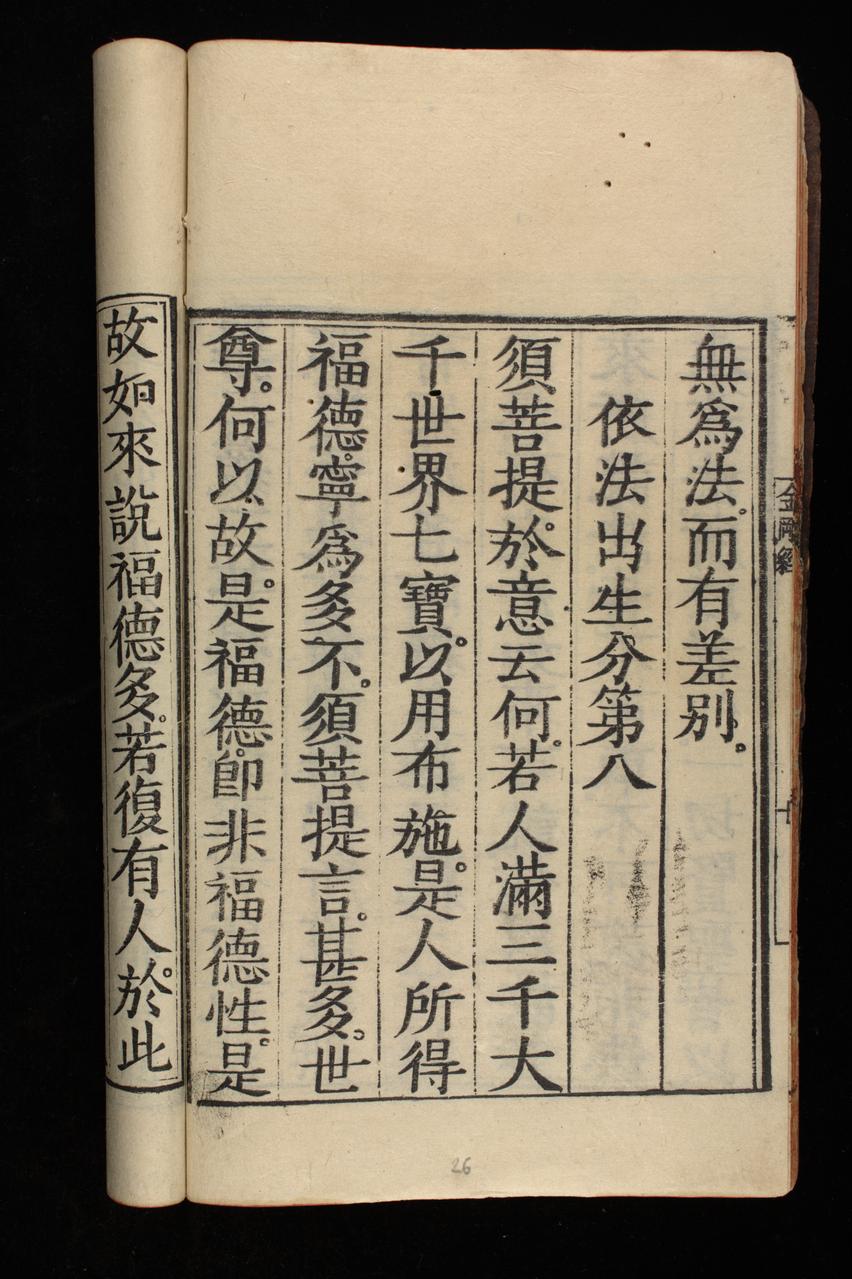 無爲法。而有差别。
依法出生分第八
須菩提。於意云何。若人滿三千大
千世界七寶。以用布施。是人所得
福德。寧爲多不。須菩提言。甚多。世
尊。何以故。是福德。卽非福德性。是
故如來說福德多。若復有人。於此
金剛經
26